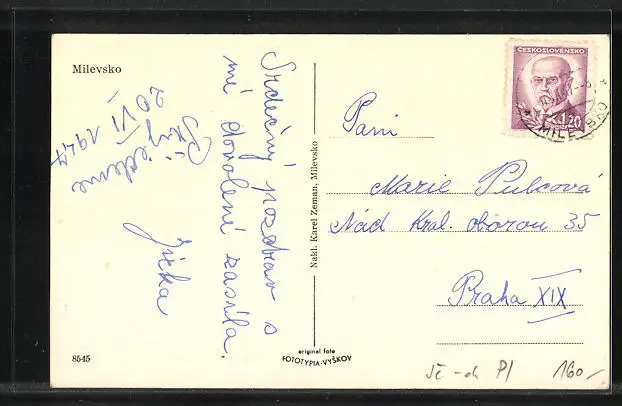 Milevsko
Srdečný pozdrav s
mé dovolení zasílá.
Jitka
Přijedeme
20 VI 1947
8545
Nakl. Karel Zeman, Milevsko
original foto
FOTOTYPIA-VYŠKOV
ČESKOSLOVENSKO
K 1.20
MILEVSKO
Paní
Marie Pulcová
Nád Kral. oborou 35
Praha XIX
Pl 160,-